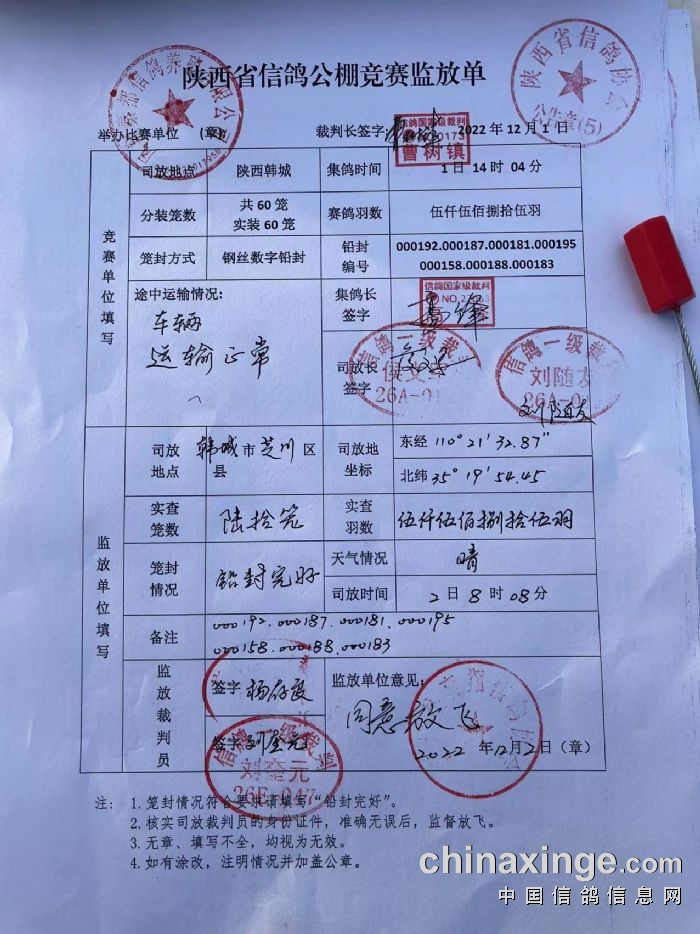 陕西省信鸽公棚竞赛监放单
陕西省信鸽协会
公告章(5)
举办比赛单位 (章)
裁判长签字
信鸽国家级裁判
曹树镇
2022年12月1日
竞赛单位填写
司放地点 陕西韩城 集鸽时间 1日14时04分
分装笼数 共60笼 实装60笼 赛鸽羽数 伍仟伍佰捌拾伍羽
笼封方式 钢丝数字铅封 铅封编号 000192.000187.000181.000195
000158.000188.000183
途中运输情况:
车辆
运输正常
集鸽长签字
信鸽国家级裁判
司放长签字
信鸽一级裁判
信鸽一级裁判
刘随友
刘随友
监放单位填写
司放地点 韩城市芝川区县 司放地坐标 东经110°21′32.87″
北纬35°19′54.45
实查笼数 陆拾笼 实查羽数 伍仟伍佰捌拾伍羽
笼封情况 铅封完好 天气情况 晴
司放时间 2日8时08分
备注 000192.000187.000181.000195
000158.000188.000183
监放裁判员
签字 杨存良
签字 刘奎元
信鸽一级裁判
刘奎元
26E-047
监放单位意见:
同意放飞
2022年12月2日(章)
注: 1.笼封情况符合要求请填写“铅封完好”。
2.核实司放裁判员的身份证件,准确无误后,监督放飞。
3.无章、填写不全,均视为无效。
4.如有涂改,注明情况并加盖公章。
chinaxinge.com
中国信鸽信息网